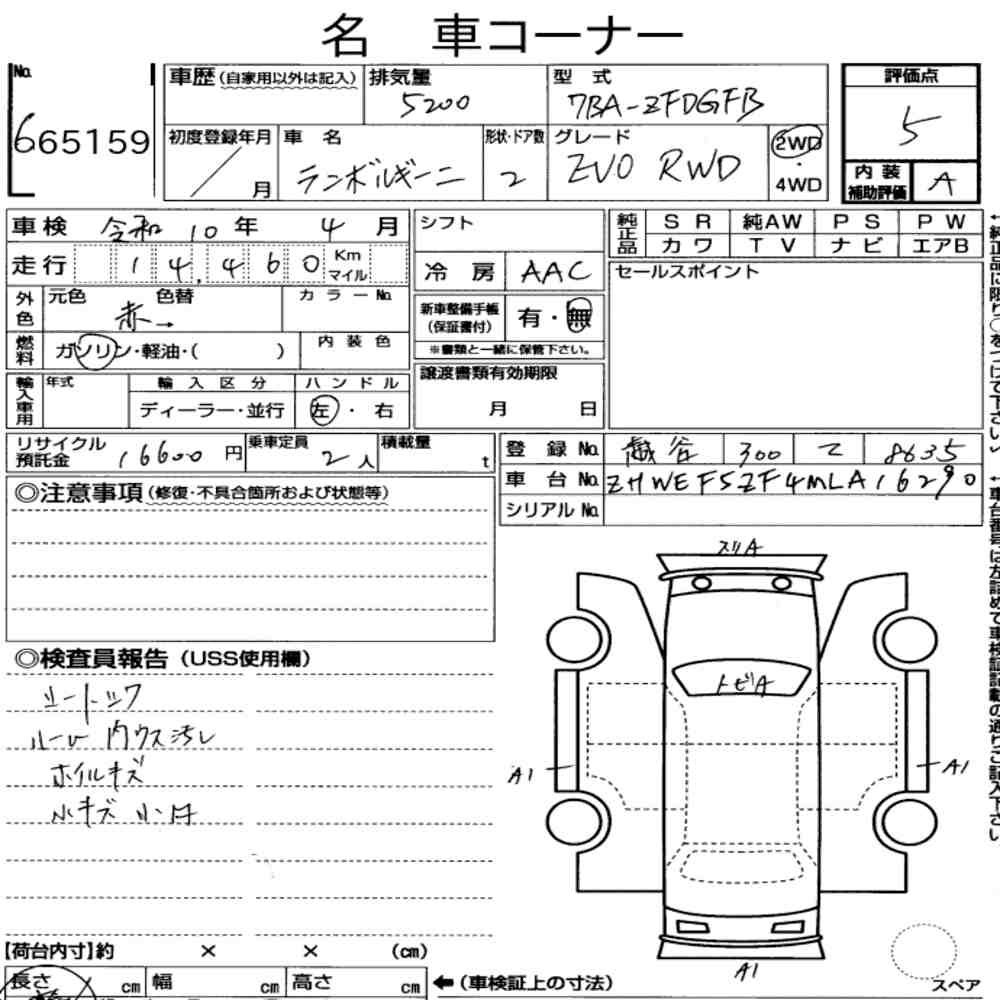 名 車コーナー
No. 665159
車歴(自家用以外は記入) 排気量 5200 型式 7BA-ZFDGFB 評価点 5
初度登録年月 / 月 車名 ランボルギーニ 形状・ドア数 2 グレード EVO RWD 2WD・4WD 内装補助評価 A
車検 令和 10 年 4 月 シフト 純正品 SR 純AW PS PW
カワ TV ナビ エアB
走行 14,460 Km マイル 冷房 AAC セールスポイント
外色 元色 赤→ 色替 カラーNo. 新車整備手帳(保証書付) 有・無
※書類と一緒に保管下さい。
燃料 ガソリン・軽油・( ) 内装色
輸入車用 年式 輸入区分 ハンドル 譲渡書類有効期限
ディーラー・並行 左・右 月 日
リサイクル預託金 16600円 乗車定員 2人 積載量 t 登録No. 越谷 300 て 8635
車台No. ZHWEF5ZF4MLA16290
◎注意事項(修復・不具合箇所および状態等) シリアルNo.
◎検査員報告(USS使用欄)
シートスク
ルーム内ウス汚レ
ホイルキズ
小キズ 小凹
スリA
トビA
A1
A1
A1
【荷台内寸】約 × × (cm)
長さ cm 幅 cm 高さ cm ←(車検証上の寸法)
スペア
←純正品に限り○をつけて下さい。
←車台番号は左詰めで車検証記載の通りご記入下さい